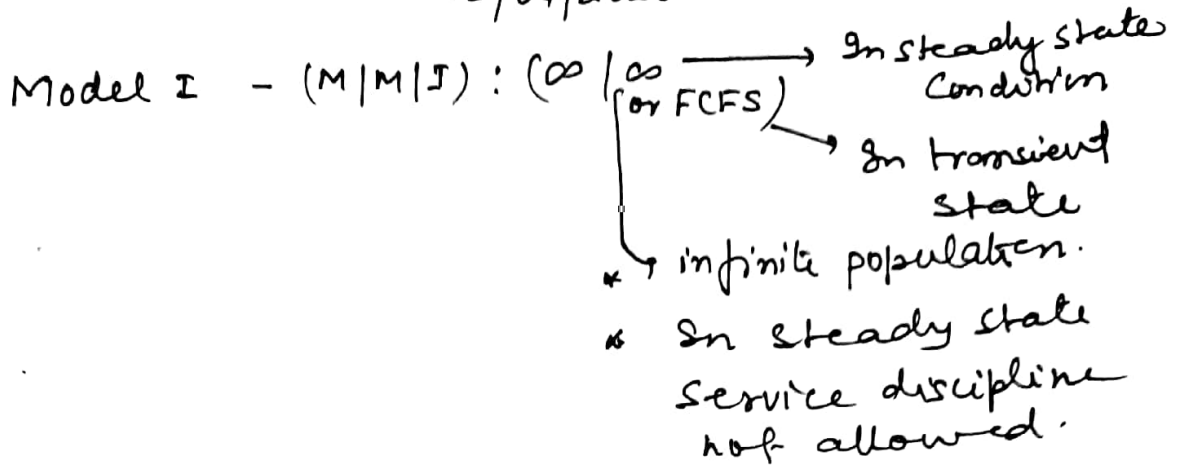 Model I - (M|M|I) : (∞ | ∞ → In steady state
Condition
or FCFS) → In transient
state
* infinite population.
* In steady state
service discipline
not allowed.